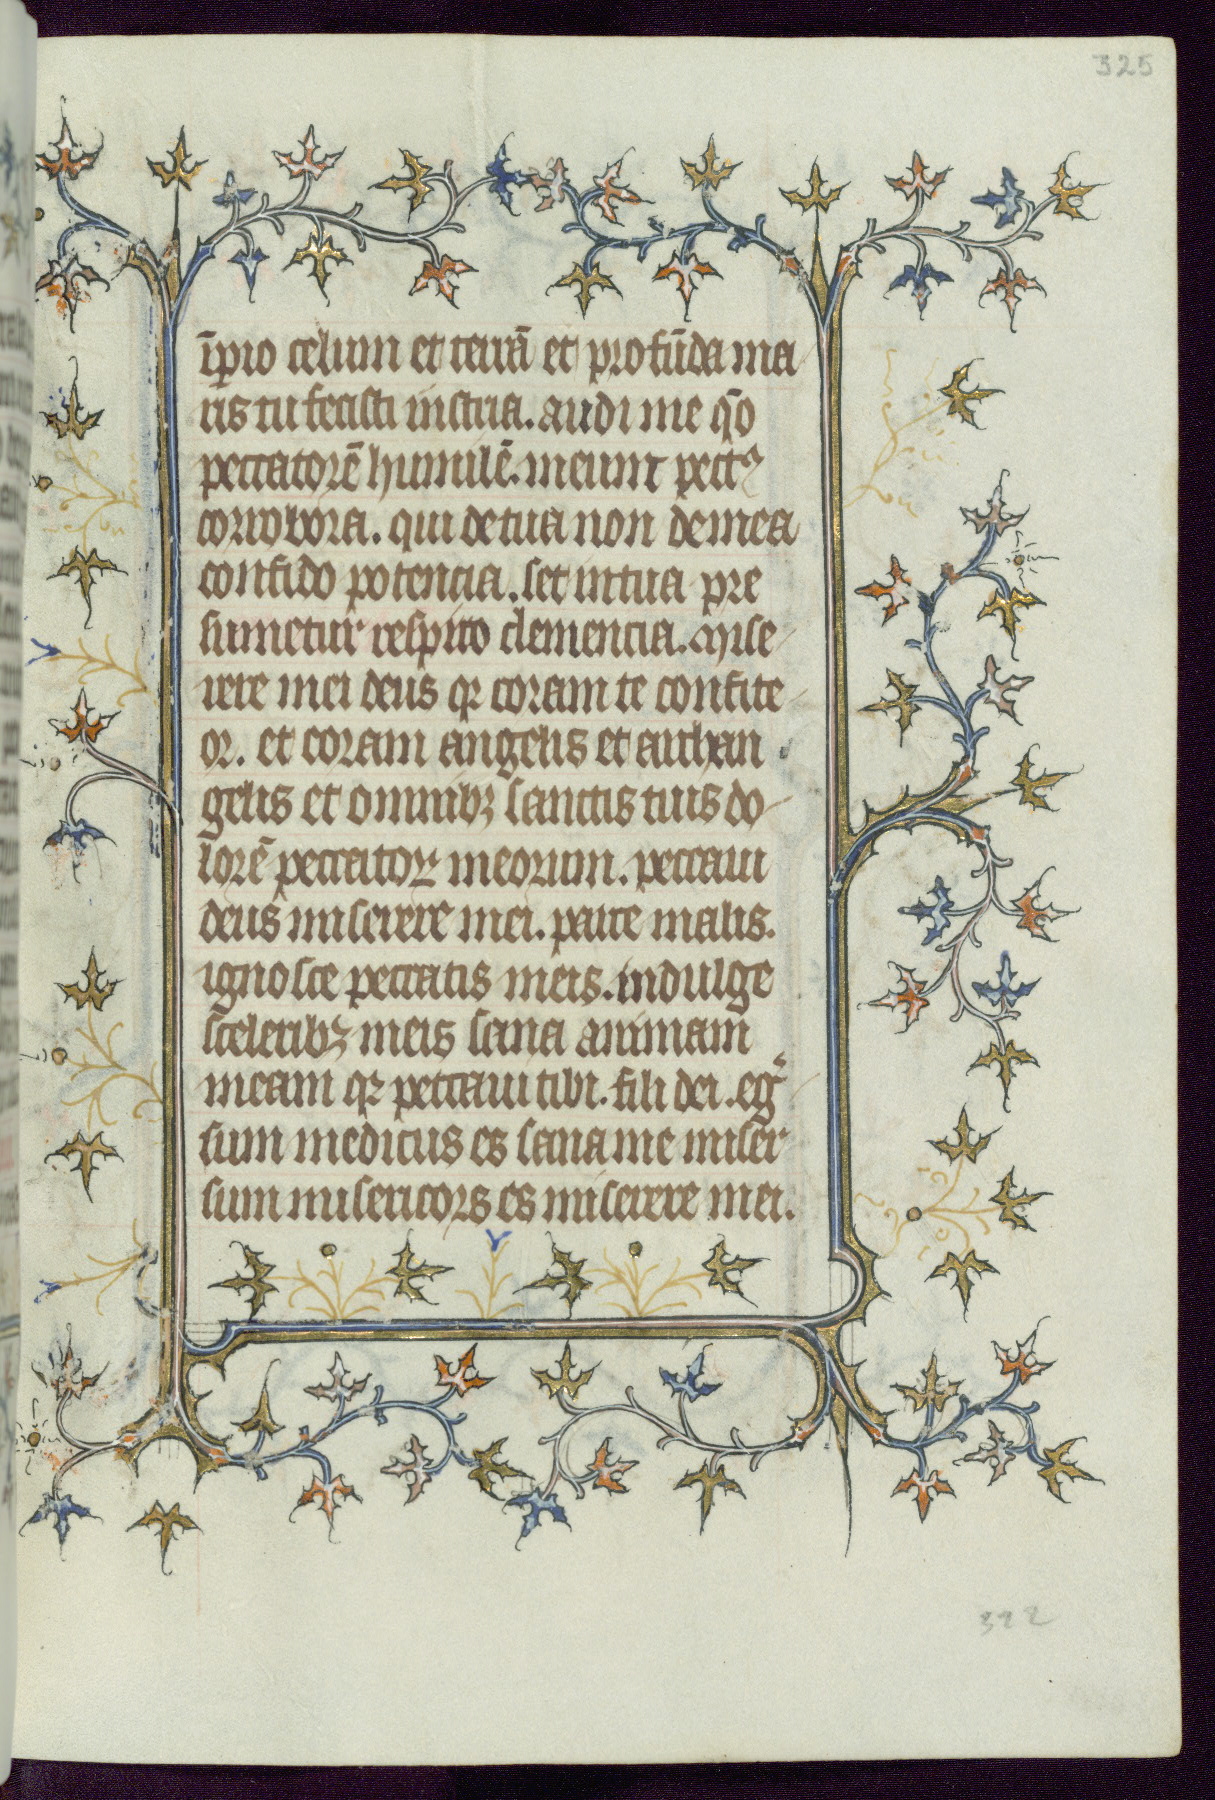 325
īpio celum et terrā et profūda ma
ris tu fecisti in stua. audi me q̄so
peccatorē humilē. meumt pect9
corrobora. qui de tua non de mea
confido potencia. set in tua pre
sumetur respito clemencia. Mise
rere mei deus qr coram te confite
or. et coram angelis et archan
gelis et omnibꝫ sanctis tuis do
lorē peccatoꝝ meorum. peccaui
deus miserere mei. parce malis.
ignosce peccatis meis. indulge
sceleribꝫ meis sana animam
meam qr peccaui tibi. fili dei. egr
sum medicus es sana me miser
sum misericors es miserere mei.
322